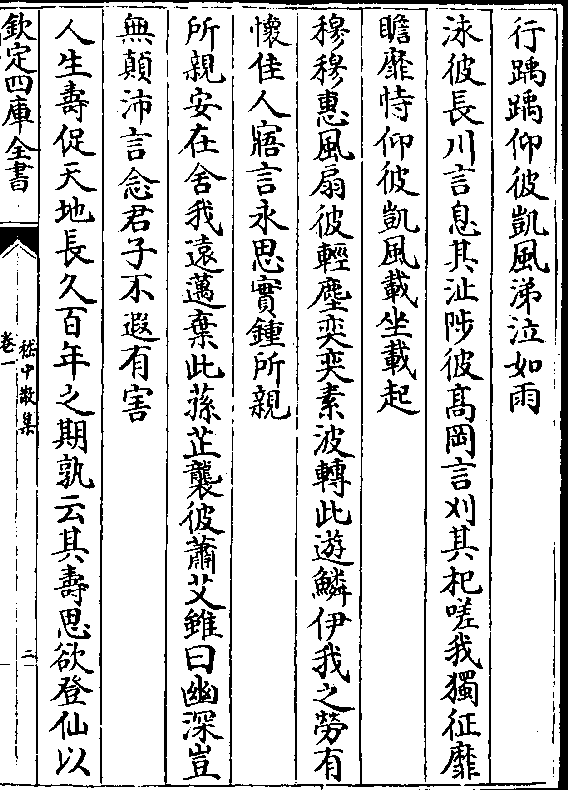 行踽踽仰彼凱風涕泣如雨
泳彼長川言息其沚陟彼高岡言刈其杞嗟我獨征靡
瞻靡恃仰彼凱風載坐載起
穆穆惠風扇彼輕塵奕奕素波轉此遊鱗伊我之勞有
懷佳人寤言永思實鍾所親
所親安在舍我遠邁棄此蓀芷襲彼蕭艾雖曰幽深豈
無顛沛言念君子不遐有害
人生壽促天地長久百年之期孰云其壽思欲登仙以
欽定四庫全書
嵇中散集
卷一
二